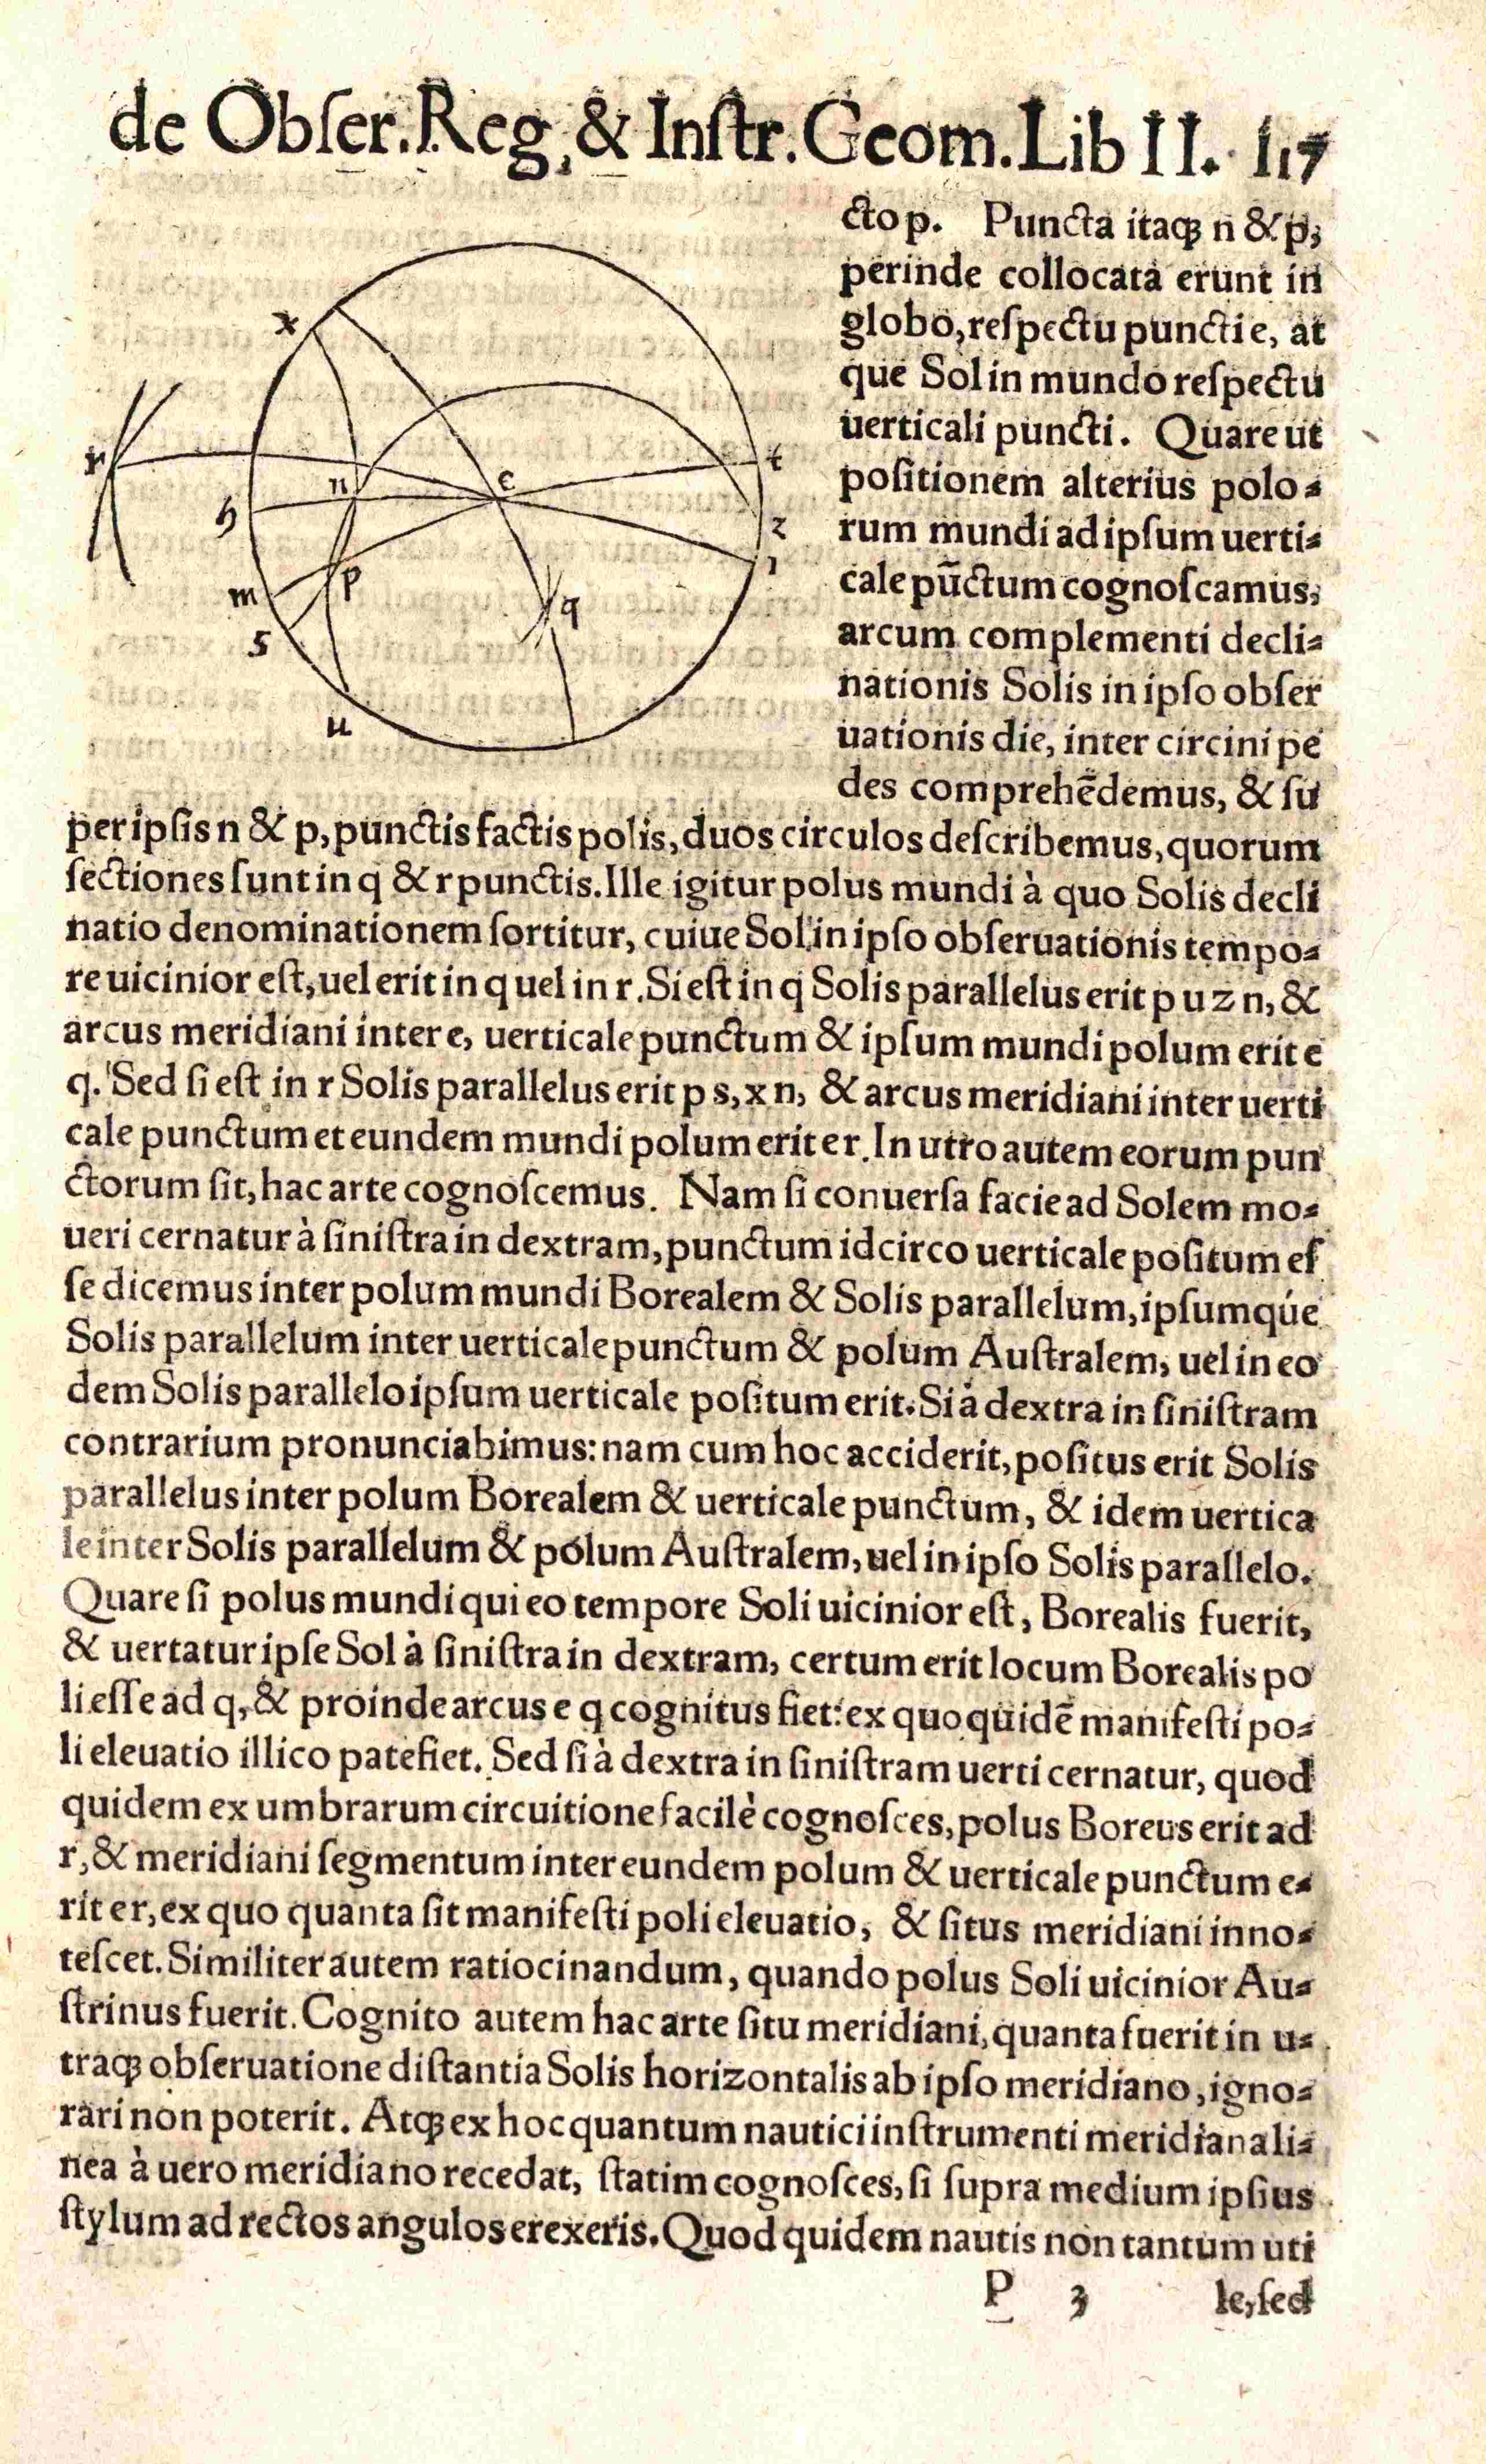 de Obſer. Reg, & Inſtr. Geom. Lib II. 117
cto p. Puncta itaqꝫ n & p,
perinde collocata erunt in
globo, reſpectu puncti e, at
que Sol in mundo reſpectu
uerticali puncti. Quare ut
poſitionem alterius polo⸗
rum mundi ad ipſum uerti⸗
cale pūctum cognoſcamus,
arcum complementi decli⸗
nationis Solis in ipſo obſer
uationis die, inter circini pe
des comprehēdemus, & ſu
per ipſis n & p, punctis factis polis, duos circulos deſcribemus, quorum
ſectiones ſunt in q & r punctis. Ille igitur polus mundi à quo Solis decli
natio denominationem ſortitur, cuiue Sol in ipſo obſeruationis tempo⸗
re uicinior eſt, uel erit in q uel in r. Si eſt in q Solis parallelus erit p u z n, &
arcus meridiani inter e, uerticale punctum & ipſum mundi polum erit e
q. Sed ſi eſt in r Solis parallelus erit p s, x n, & arcus meridiani inter uerti
cale punctum et eundem mundi polum erit e r. In utro autem eorum pun
ctorum ſit, hac arte cognoſcemus. Nam ſi conuerſa facie ad Solem mo⸗
ueri cernatur à ſiniſtra in dextram, punctum idcirco uerticale poſitum eſ
ſe dicemus inter polum mundi Borealem & Solis parallelum, ipſumqúe
Solis parallelum inter uerticale punctum & polum Auſtralem, uel in eo
dem Solis parallelo ipſum uerticale poſitum erit. Si à dextra in ſiniſtram
contrarium pronunciabimus: nam cum hoc acciderit, poſitus erit Solis
parallelus inter polum Borealem & uerticale punctum, & idem uertica
le inter Solis parallelum & polum Auſtralem, uel in ipſo Solis parallelo.
Quare ſi polus mundi qui eo tempore Soli uicinior eſt, Borealis fuerit,
& uertatur ipſe Sol à ſiniſtra in dextram, certum erit locum Borealis po
li eſſe ad q, & proinde arcus e q cognitus fiet: ex quo quidē manifeſti po⸗
li eleuatio illico patefiet. Sed ſi à dextra in ſiniſtram uerti cernatur, quod
quidem ex umbrarum circuitione facilè cognoſces, polus Boreus erit ad
r, & meridiani ſegmentum inter eundem polum & uerticale punctum e⸗
rit e r, ex quo quanta ſit manifeſti poli eleuatio, & ſitus meridiani inno⸗
teſcet. Similiter autem ratiocinandum, quando polus Soli uicinior Au⸗
ſtrinus fuerit. Cognito autem hac arte ſitu meridiani, quanta fuerit in u⸗
traqꝫ obſeruatione diſtantia Solis horizontalis ab ipſo meridiano, igno⸗
rari non poterit. Atqꝫ ex hoc quantum nautici inſtrumenti meridiana li⸗
nea à uero meridiano recedat, ſtatim cognoſces, ſi ſupra medium ipſius
ſtylum ad rectos angulos erexeris. Quod quidem nautis non tantum uti
P 3 le, ſed
x
r
n
e
t
h
z
m
p
q
s
u